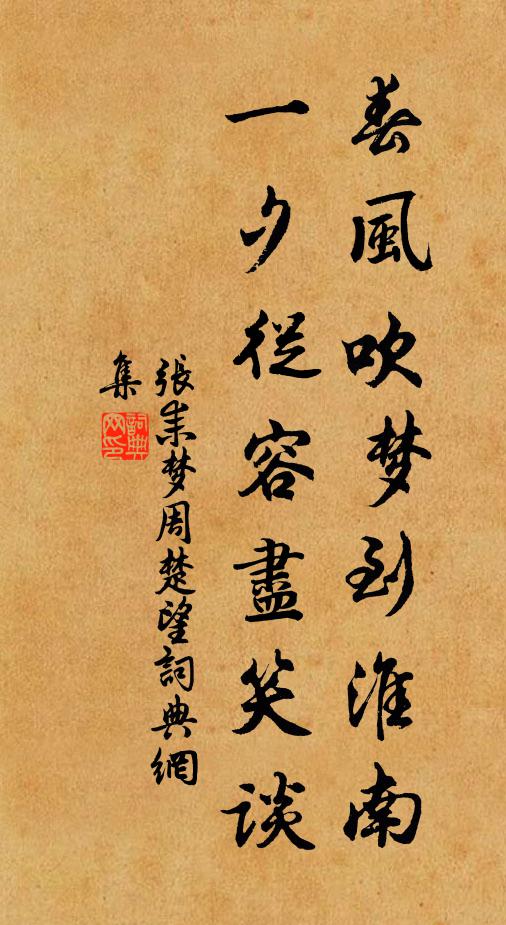 春風吹梦到淮南
一夕從容盡笑談
張耒梦周楚望詞典網
集
詞典
网印